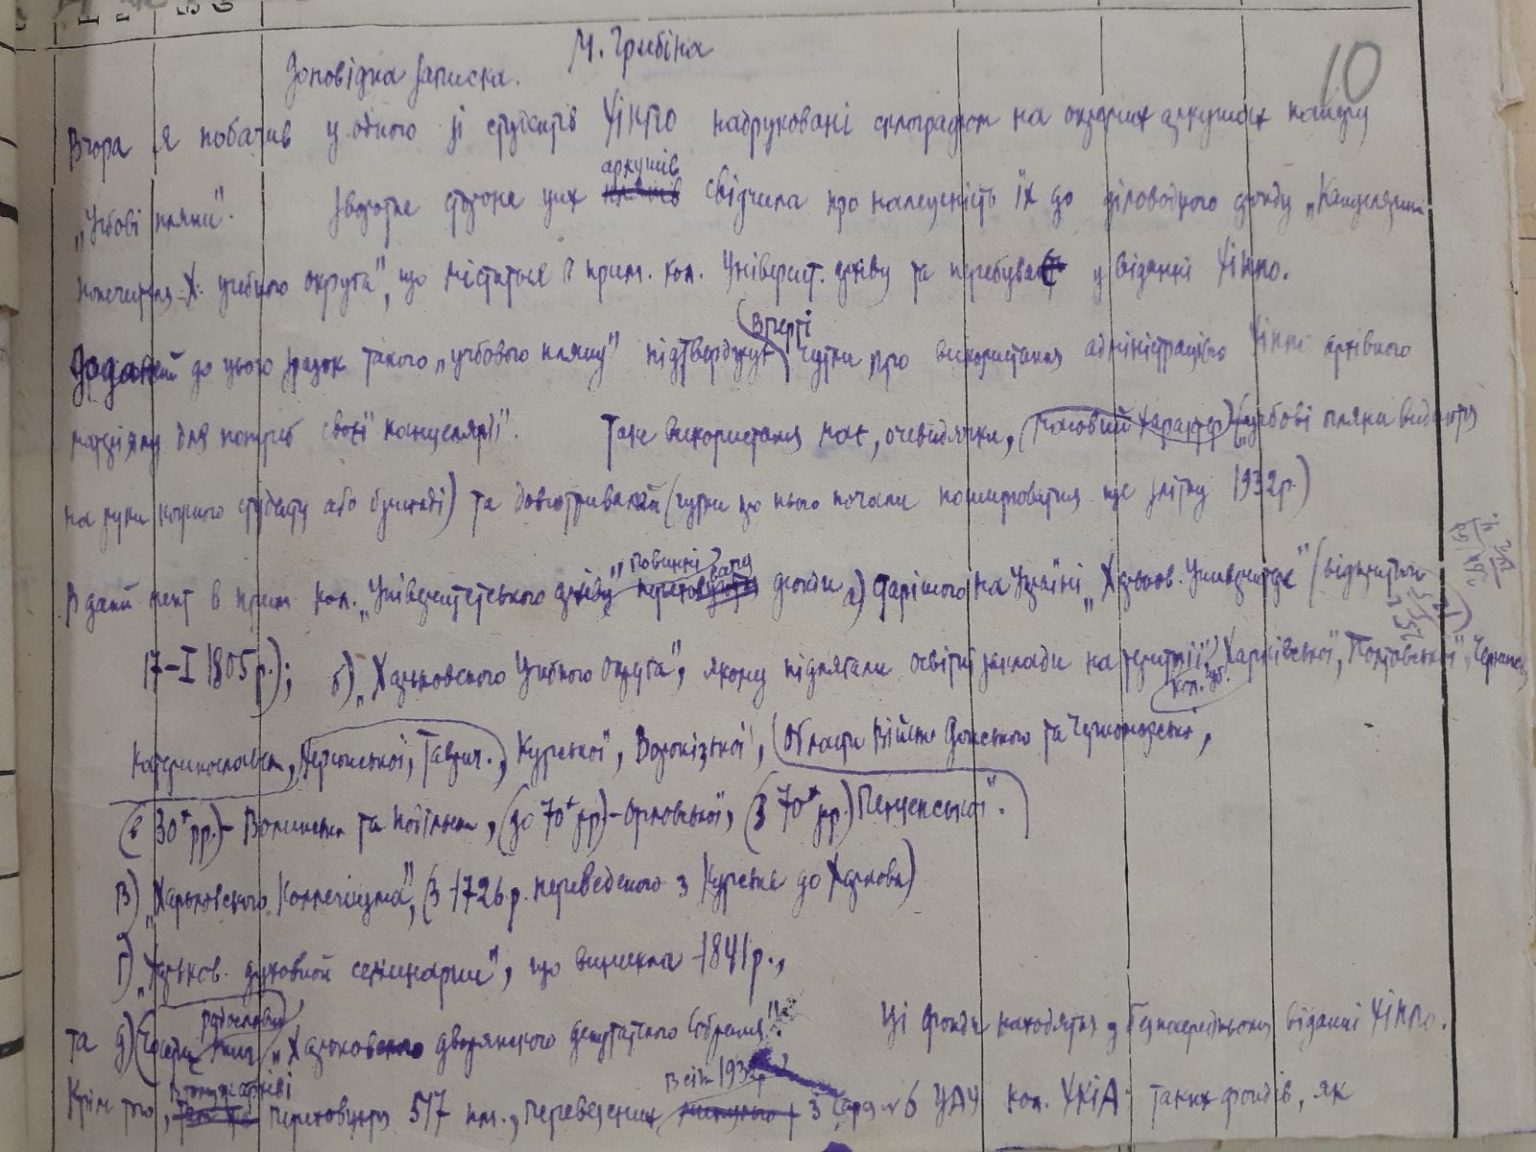 М. Грибіна
10
Доповідна записка.
Вчора я побачив у одного зі студентів ХІНГО надруковані склографом на окремих аркушах паперу
аркушів
„Учбові пляни". Зворотня сторона цих плянів свідчила про належність їх до діловодного фонду „Канцелярии
попечителя Х. учебного округа", що міститься в прим. кол. Університ. архіву та перебуває у віданні ХІНГО.
Вперті
Доданий до цього зразок такого „учбового пляну" підтверджує чутки про використання адміністрацією ХІНГО архівного
матеріялу для потреб своєї канцелярії". Таке використання має, очевидячки, масовий характер (учбові пляни видаються
на руки кожного студенту або бригаді) та довготривалий (чутки про нього почали поширюватися ще улітку 1932 р.)
повинні
В даний мент в прим. кол. „Університетського архіву" переховуються фонди а) старішого на Україні „Харьков. Университета" (відкритого
17-I 1805 р.); б) „Харьковского Учебного Округа", якому підлягали освітні заклади на території Харківської, Полтавської,
кол. губ.
Катеринославськ, Херсонської, Таврич., Курської, Воронізької, Области Війська Донського та Чорноморської,
(з 30х рр.) - Волинськ та Київськ, (до 70х рр) - Орловської, (з 70х рр.) Пензенської".
в) „Харьковского Коллегиума", (з 1726 р. переведеного з Курська до Харкова)
г) „Харьков. духовной семинарии", що виникла 1841 р.,
родословн
та д) книг „Харьковского дворянского депутатского собрания". Ці фонди находяться у безпосередньому віданні ХІНГО.
В тому архіві
В січ 1932 р
Крім того, переховують 517 кл., переведених з Серп 6 УАУ кол. УКІА таких фондів, як